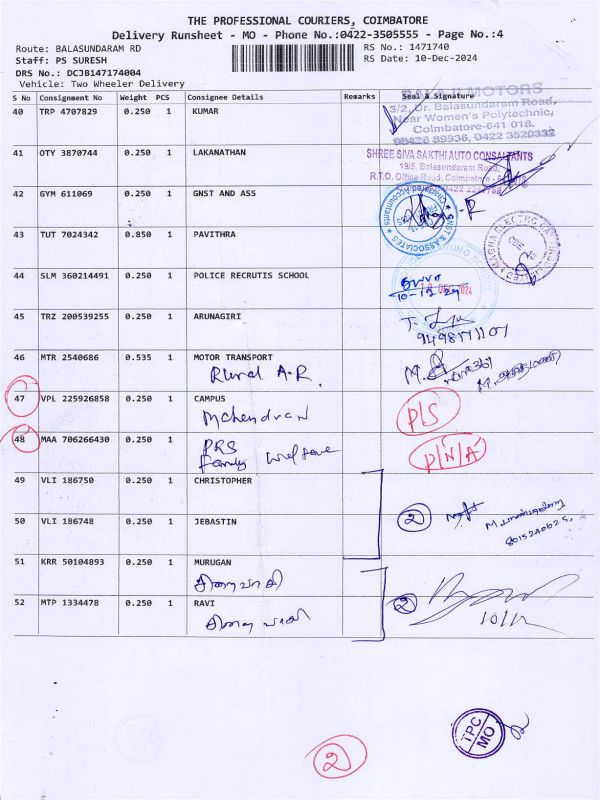 THE PROFESSIONAL COURIERS, COIMBATORE
Delivery Runsheet - MO - Phone No.:0422-3505555 - Page No.:4
Route: BALASUNDARAM RD
RS No.: 1471740
Staff: PS SURESH
RS Date: 10-Dec-2024
DRS No.: DCJB147174004
Vehicle: Two Wheeler Delivery
S No Consignment No Weight PCS Consignee Details Remarks Seal & Signature
BALAJI MOTORS
3/2, Dr. Balasundaram Road,
Near Women's Polytechnic,
Coimbatore-641 018.
98426 89936, 0422 3520332
40 TRP 4707829 0.250 1 KUMAR
41 OTY 3870744 0.250 1 LAKANATHAN
SHREE SIVA SAKTHI AUTO CONSULTANTS
19/5, Balasundaram Road,
R.T.O. Office Road, Coimbatore
42 GYM 611069 0.250 1 GNST AND ASS
Chartered Accountants
GNST & ASSOCIATES
43 TUT 7024342 0.850 1 PAVITHRA
44 SLM 360214491 0.250 1 POLICE RECRUTIS SCHOOL
DEC 2024
10-12-24
45 TRZ 200539255 0.250 1 ARUNAGIRI
9498871107
46 MTR 2540686 0.535 1 MOTOR TRANSPORT
Rural A.R.
47 VPL 225926858 0.250 1 CAMPUS
Mahendran
P/S
48 MAA 706266430 0.250 1
PRS
Family Welfare
P/N/A
49 VLI 186750 0.250 1 CHRISTOPHER
50 VLI 186748 0.250 1 JEBASTIN
2
8015240625
51 KRR 50104893 0.250 1 MURUGAN
52 MTP 1334478 0.250 1 RAVI
2
10/12
TPC
MO
2